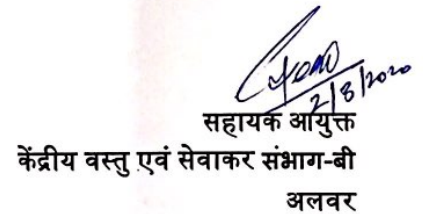 2/8/2020
सहायक आयुक्त
केंद्रीय वस्तु एवं सेवाकर संभाग-बी
अलवर